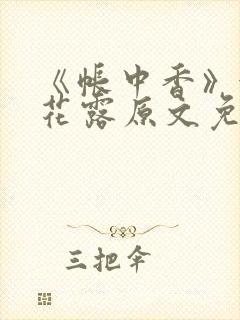 《帐中香》
花露原文免
三把伞